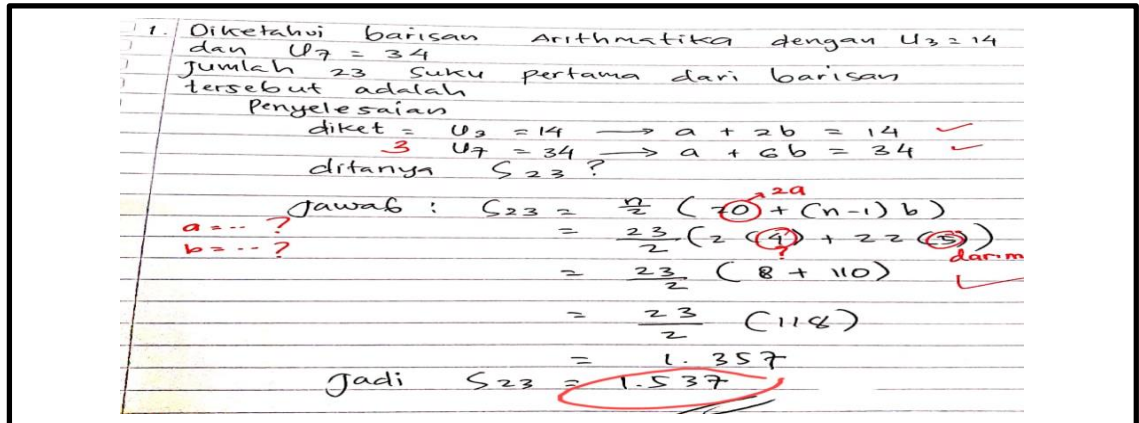 1. Diketahui barisan Arithmatika dengan U3 = 14
dan U7 = 34
Jumlah 23 suku pertama dari barisan
tersebut adalah
Penyelesaian
diket = U3 = 14 → a + 2b = 14 ✓
3 U7 = 34 → a + 6b = 34 ✓
ditanya S23 ?
2a
Jawab : S23 = n/2 ( 70 + (n-1) b )
a = -- ?
= 23/2 (2 (4) + 22 (5))
b = -- ?
?
= 23/2 ( 8 + 110)
= 23/2 (118)
= 1.357
Jadi S23 = 1.537